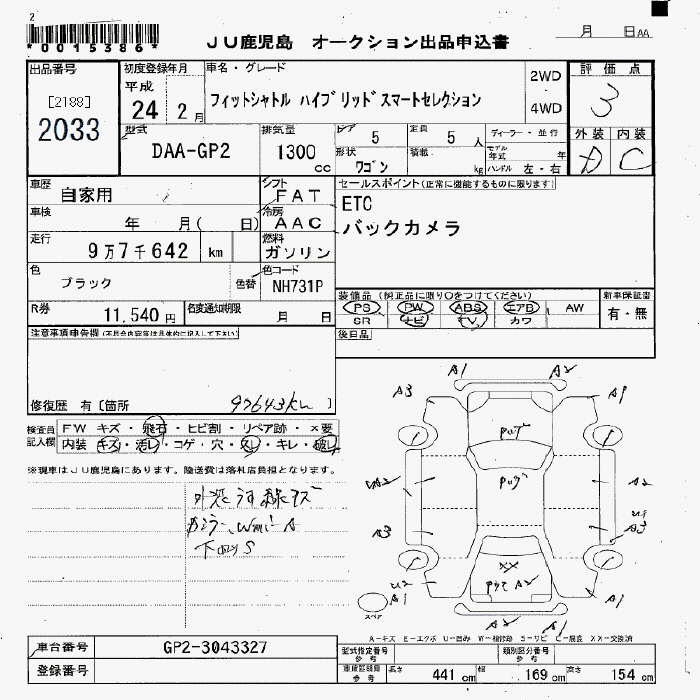 2
*0015386*
JU鹿児島 オークション出品申込書
月 日AA
出品番号
[2188]
2033
初度登録年月
平成
24 2月
車名・グレード
フィットシャトル ハイブリッドスマートセレクション
2WD
4WD
評価点
3
外装 内装
D C
型式
DAA-GP2
排気量
1300
cc
ドア 5
定員 5 人
形状 ワゴン
積載 kg
ディーラー・並行
モデル年式 年
ハンドル 左・右
車歴 自家用
シフト FAT
車検 年 月( 日)
冷房 AAC
走行 9万7千642 km
燃料 ガソリン
色 ブラック
色替
色コード NH731P
R券 11,540円
名変通知期限 月 日
セールスポイント(正常に機能するものに限ります)
ETC
バックカメラ
装備品(純正品に限り○をつけてください)
PS PW ABS エアB AW
SR ナビ TV カワ
新車保証書
有・無
後日品
注意事項申告欄(不具合内容等は具体的に記入して下さい)
修復歴 有〔箇所 97643km 〕
検査員記入欄
FW キズ・飛石・ヒビ割・リペア跡・×要
内装・キズ・汚レ・コゲ・穴・スレ・キレ・破レ
※現車はJU鹿児島にあります。陸送費は落札店負担となります。
外装うす線キズ
A1 A2
A3 A1
A2 A2
A3 A3
U2 A1
A1
XX
A2
A2 A1
スペア
A-キズ E-エクボ U-凹み W-補修跡 S-サビ C-腐食 XX-交換済
車台番号 GP2-3043327
登録番号
型式指定番号 参考
類別区分番号 参考
車庫証明用 参考
長さ 441 cm 幅 169 cm 高さ 154 cm